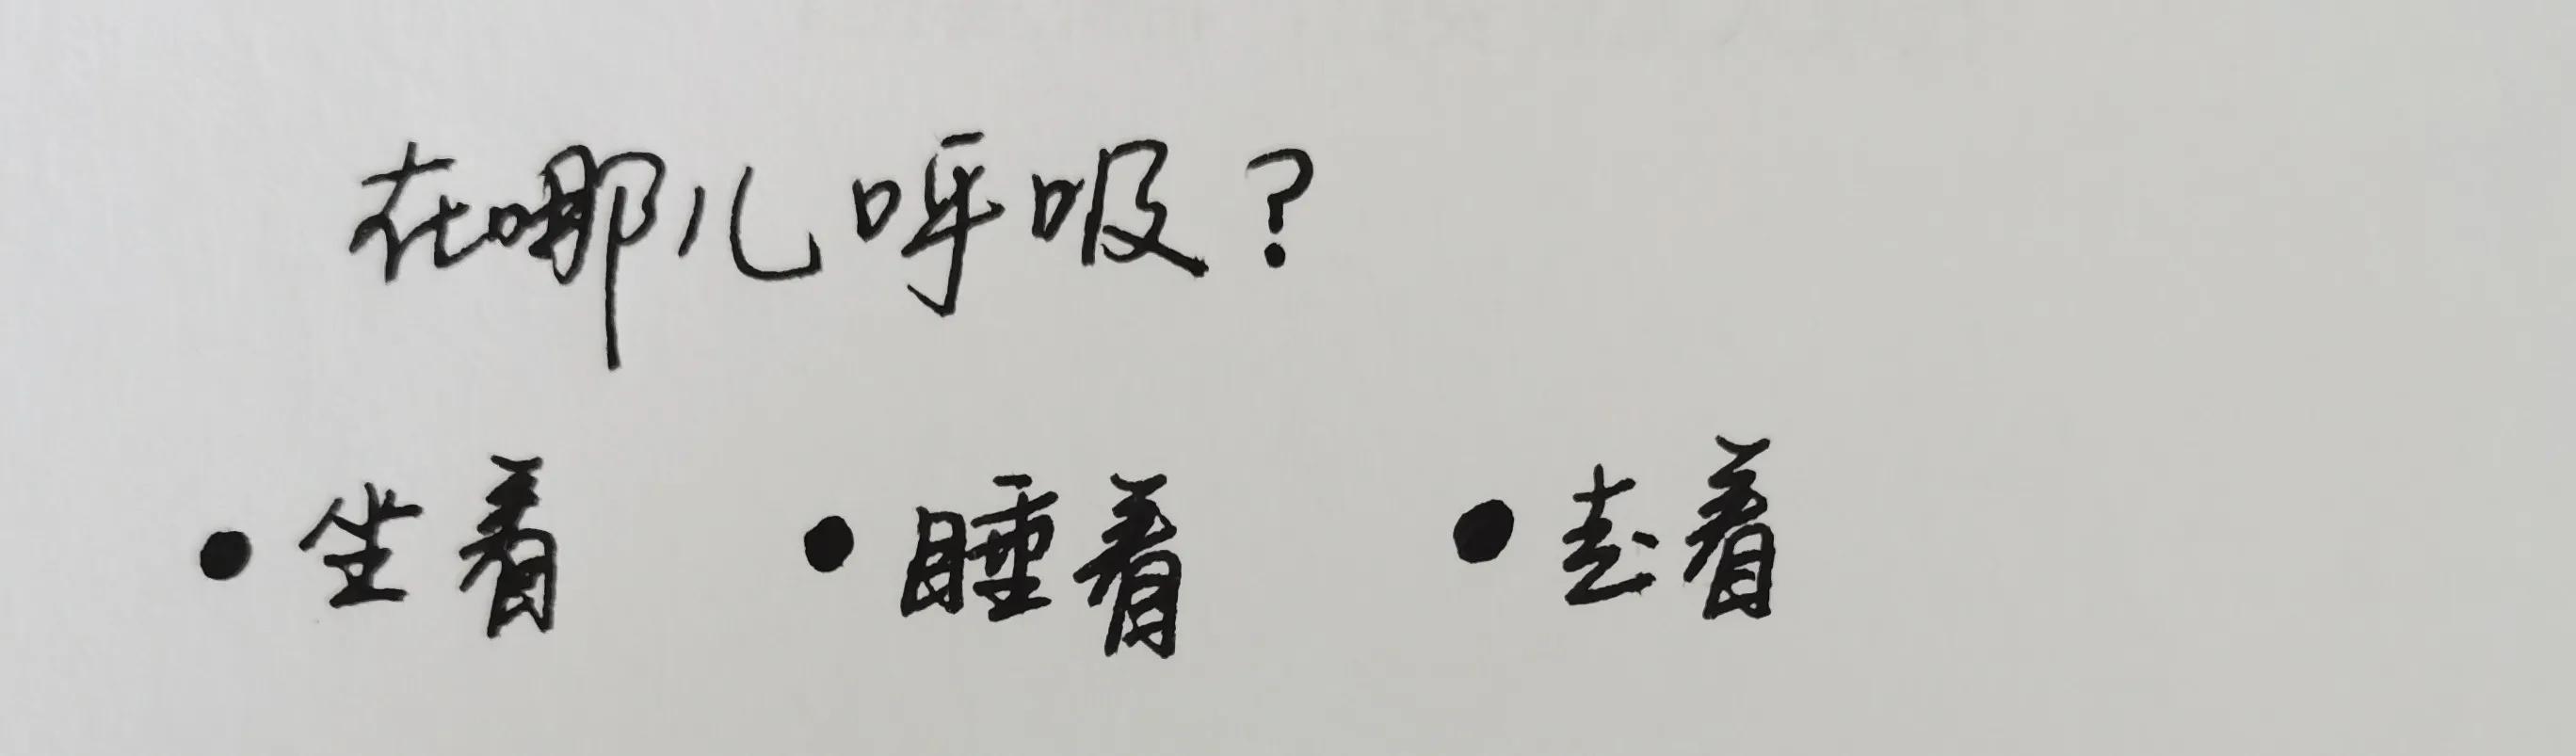 在哪儿呼吸?
•坐着 •睡着 •去着